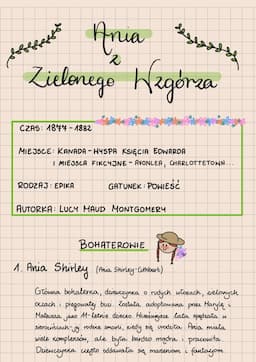 Ania
z
Zielonego Wzgórza
CZAS: 1877 - 1882
MIEJSCE: KANADA - WYSPA KSIĘCIA EDWARDA
I MIEJSCA FIKCYJNE - AVONLEA, CHARLOTTETOWN...
RODZAJ: EPIKA GATUNEK: POWIEŚĆ
AUTORKA: LUCY MAUD MONTGOMERY
BOHATEROWIE
1. Ania Shirley (Ania Shirley-Cuthbert)
Główna bohaterka, dziewczynka o rudych włosach, zielonych
oczach i piegowatej buzi. Została adoptowana przez Marylę i
Mateusza jako 11-letnie dziecko. Wcześniejsze lata spędzała w
sierocińcach, jej rodzice zmarli, kiedy się urodziła. Ania miała
wiele kompleksów, ale była bardzo mądra i pracowita.
Dziewczynka często oddawała się marzeniom i fantazjom